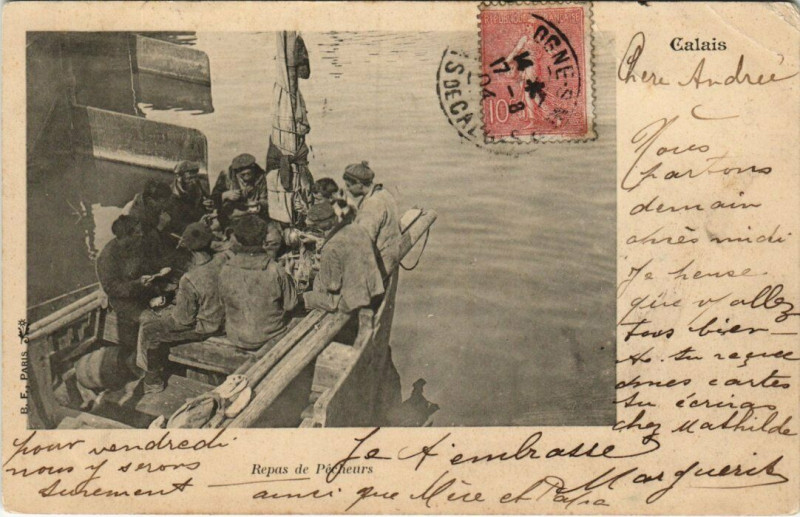 Calais
RÉPUBLIQUE FRANÇAISE
10
17-8
04
Chère Andrée
Nous
partons
demain
après midi
Je pense
que v/ allez
tous bien
As tu reçue
mes cartes
tu écriras
chez Mathilde
pour vendredi
nous y serons
surement
B. F., PARIS
Repas de Pêcheurs
Je t'embrasse
ainsi que Mère et Papa
Marguerite